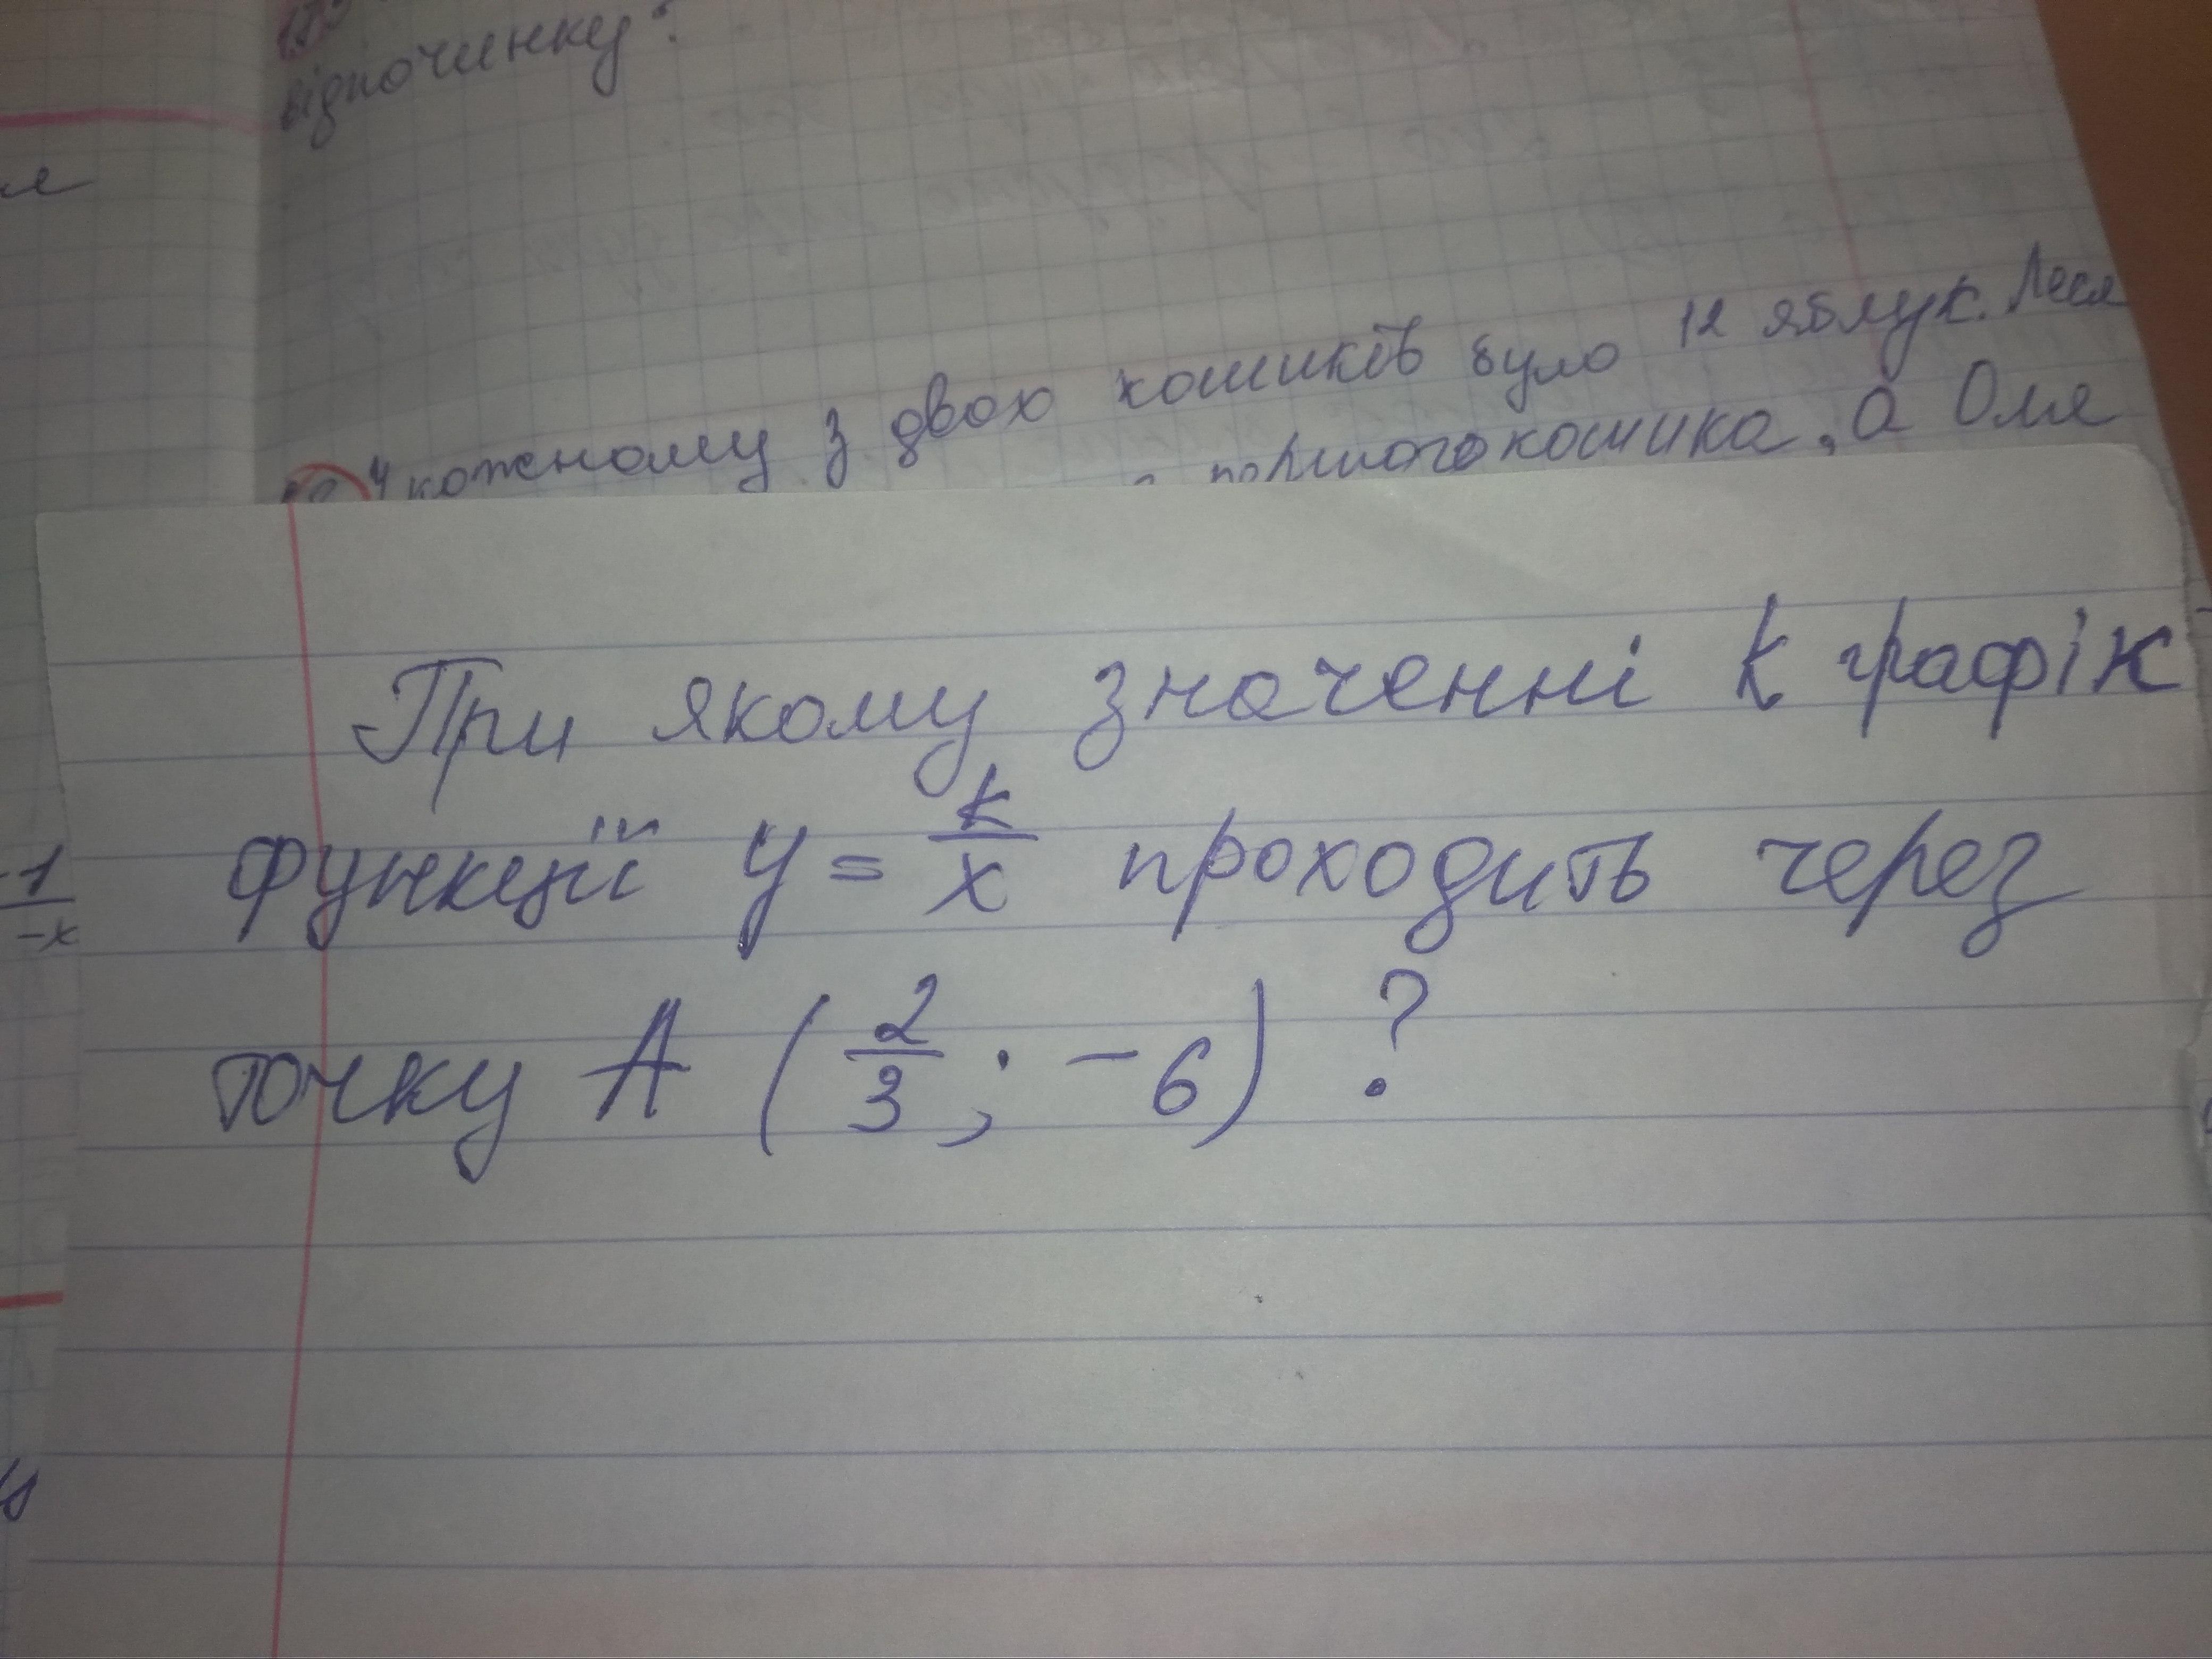 відпочинку?
У кожному з двох кошиків було 12 яблук. Леся
першого кошика, а Оля
При якому значенні k графік
функції y = k/x проходить через
точку A (2/3; -6) ?
-1/-x